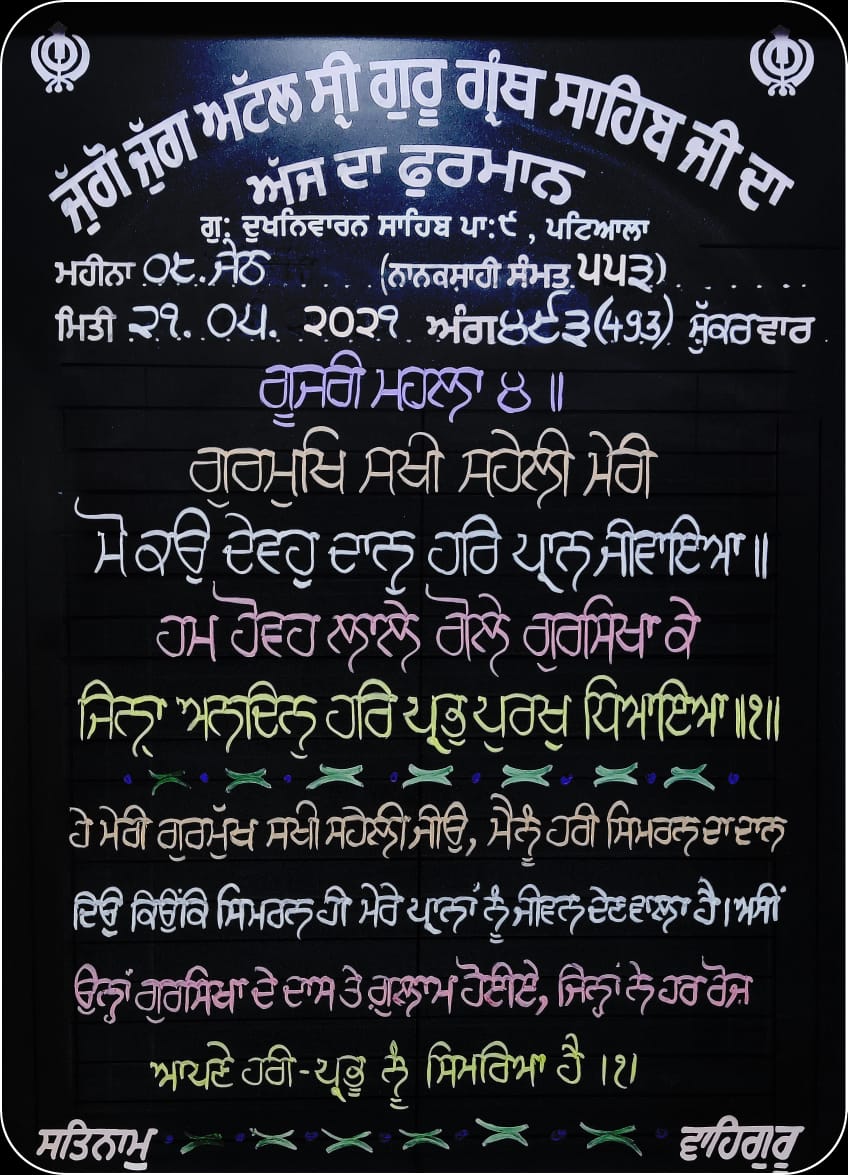 ਜੁੱਗੋ ਜੁੱਗ ਅਟੱਲ ਸ੍ਰੀ ਗੁਰੂ ਗ੍ਰੰਥ ਸਾਹਿਬ ਜੀ ਦਾ
ਅੱਜ ਦਾ ਫੁਰਮਾਨ
ਗੁ: ਦੁਖਨਿਵਾਰਨ ਸਾਹਿਬ ਪਾ:੯ , ਪਟਿਆਲਾ
ਮਹੀਨਾ ੦੮. ਜੇਠ (ਨਾਨਕਸ਼ਾਹੀ ਸੰਮਤ ੫੫੩)
ਮਿਤੀ ੨੧. ੦੫. ੨੦੨੧ ਅੰਗ ੪੯੩ (493) ਸ਼ੁੱਕਰਵਾਰ
ਗੂਜਰੀ ਮਹਲਾ ੪ ॥
ਗੁਰਮੁਖਿ ਸਖੀ ਸਹੇਲੀ ਮੇਰੀ
ਮੋ ਕਉ ਦੇਵਹੁ ਦਾਨੁ ਹਰਿ ਪ੍ਰਾਨ ਜੀਵਾਇਆ ॥
ਹਮ ਹੋਵਹ ਲਾਲੇ ਗੋਲੇ ਗੁਰਸਿਖਾ ਕੇ
ਜਿਨ੍ਹਾ ਅਨਦਿਨੁ ਹਰਿ ਪ੍ਰਭੁ ਪੁਰਖੁ ਧਿਆਇਆ ॥੧॥
ਹੇ ਮੇਰੀ ਗੁਰਮੁੱਖ ਸਖੀ ਸਹੇਲੀ ਜੀਉ, ਮੈਨੂੰ ਹਰੀ ਸਿਮਰਨ ਦਾ ਦਾਨ
ਦਿਉ ਕਿਉਂਕਿ ਸਿਮਰਨ ਹੀ ਮੇਰੇ ਪ੍ਰਾਨਾਂ ਨੂੰ ਜੀਵਨ ਦੇਣ ਵਾਲਾ ਹੈ । ਅਸੀਂ
ਉਨ੍ਹਾਂ ਗੁਰਸਿਖਾਂ ਦੇ ਦਾਸ ਤੇ ਗ਼ੁਲਾਮ ਹੋਈਏ, ਜਿਨ੍ਹਾਂ ਨੇ ਹਰ ਰੋਜ਼
ਆਪਣੇ ਹਰੀ-ਪ੍ਰਭੂ ਨੂੰ ਸਿਮਰਿਆ ਹੈ ।੧।
ਸਤਿਨਾਮੁ ਵਾਹਿਗੁਰੂ